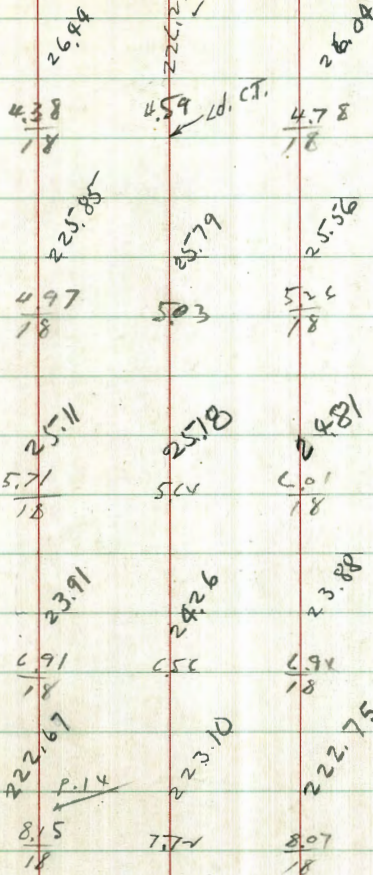 26.44 26.04
4.38 4.59 Ld. C.T. 4.78
18 18
225.85 25.79 25.56
4.97 5.03 5.26
18 18
25.11 25.18 24.81
5.71 5.64 6.01
18 18
23.91 24.26 23.88
6.91 6.56 6.94
18 18
222.67 223.10 222.75
P.14
8.15 7.72 8.07
18 18